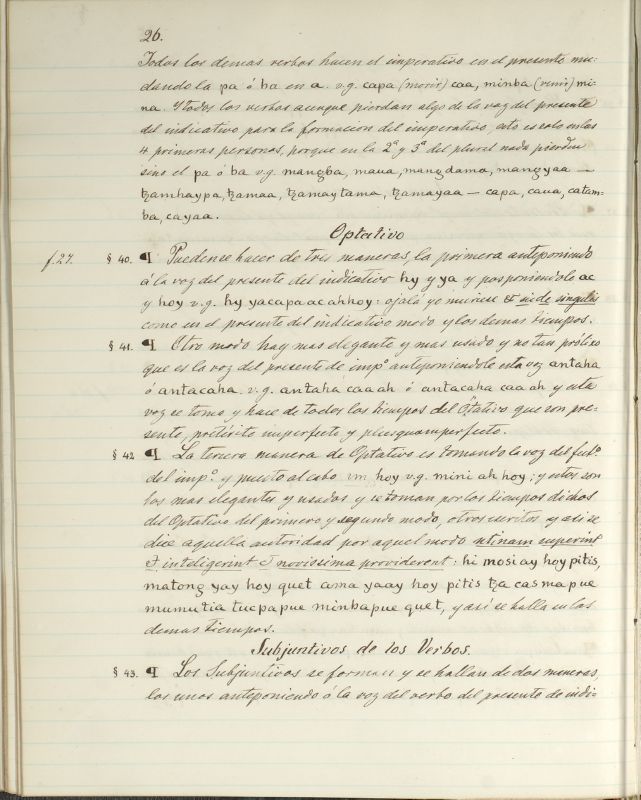 26.
Todos los demas verbos hacen el imperativo en el presente mu-
dando la pa ó ba en a. v.g. capa (morir) caa, minba (venir) mi-
na. Y todos los verbos aunque pierdan algo de la voz del presente
del indicativo para la formacion del imperativo, esto es solo en las
4 primeras personas, porque en la 2ª y 3ª del plural nada pierden
sino el pa ó ba v.g. mangba, maua, mangdama, mangyaa —
tzamhaypa, tzamaa, tzamaytama, tzamayaa — capa, caua, catam-
ba, cayaa.
Optativo
f.27. § 40. ¶ Puedense hacer de tres maneras, la primera anteponiendo
á la voz del presente del indicativo hy y ya y posponiendole ac
y hoy v.g. hy yacapa ac ah hoy: ojalá yo muriese et sic de singulis
como en el presente del indicativo modo y los demas tiempos.
§ 41. ¶ Otro modo hay mas elegante y mas usado y no tan prolixo
que es la voz del presente de impº anteponiendole esta voz antaha
ó antacaha. v.g. antaha caa ah ó antacaha caa ah y esta
voz se toma y hace de todos los tiempos del Optativo que son pre-
sente, pretérito imperfecto y plusquamperfecto.
§ 42 ¶ La tercera manera de Optativo es tomando la voz del futº
del impº. y puesto al cabo un hoy v.g. mini ah hoy; y estos son
los mas elegantes y usados y se toman por los tiempos dichos
del Optativo del primero y segundo modo, otros escritos y asi se
dice aquella autoridad por aquel modo utinam saperent
et inteligerint I novissima providerent: hi mosi ay hoy pitis,
matong yay hoy quet ama yaay hoy pitis tza casmapue
mumutia tucpapue minbapue quet, y así se halla en los
demas tiempos.
Subjuntivos de los Verbos.
§ 43. ¶ Los Subjuntivos se forman y se hallan de dos maneras,
los unos anteponiendo á la voz del verbo del presente de indi-